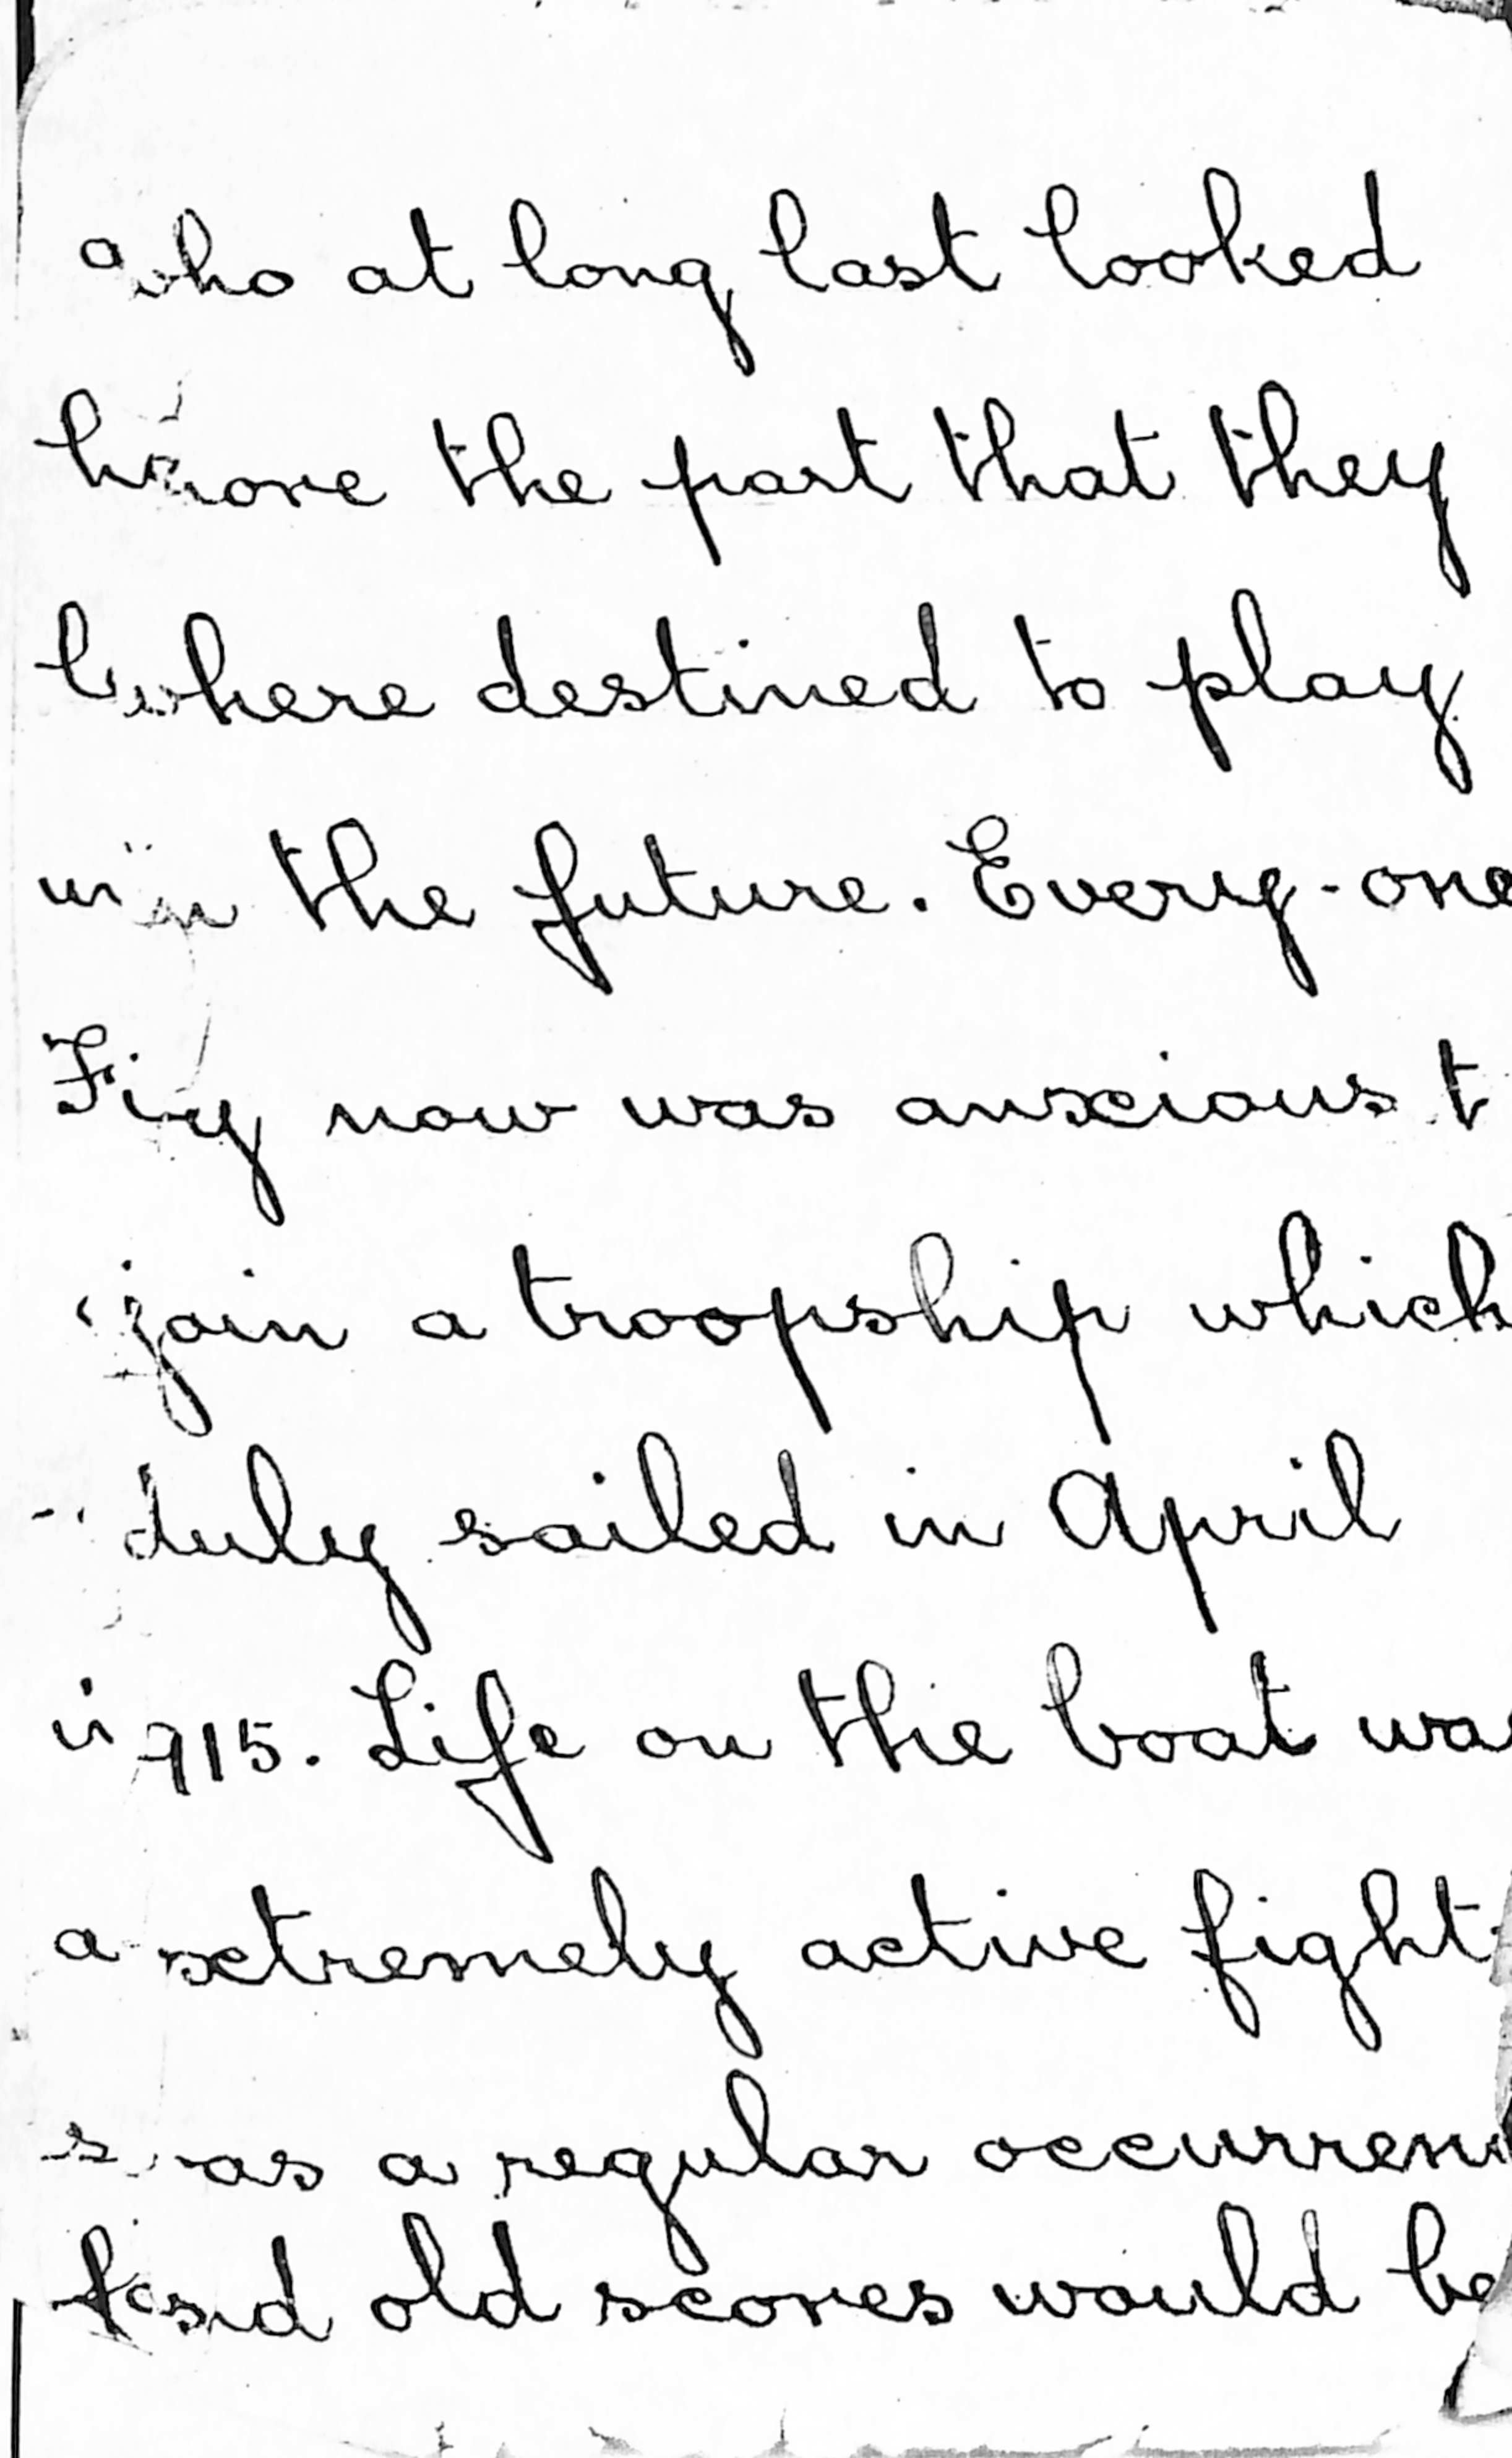 who at long last looked
more the part that they
where destined to play
in the future. Every-one
now was anxious t
join a troopship which
duly sailed in April
915. Life on the boat wa
xtremely active fight
as a regular occurren
old scores would be